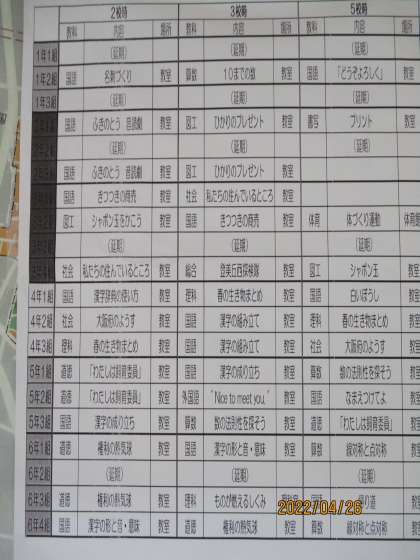 2校時 3校時 5校時
教科 内容 場所 教科 内容 場所 教科 内容 場所
1年1組 (延期) (延期) (延期)
1年2組 国語 名刺づくり 教室 算数 10までの数 教室 国語 「どうぞよろしく」 教室
1年3組 (延期) (延期) (延期)
国語 ふきのとう 音読劇 教室 図工 ひかりのプレゼント 教室 書写 プリント 教室
(延期) (延期) (延期)
国語 ふきのとう 音読劇 教室 図工 ひかりのプレゼント 教室
国語 きつつきの商売 教室 社会 私たちの住んでいるところ 教室
図工 シャボン玉をかこう 教室 国語 きつつきの商売 教室 体育 体づくり運動 体育館
(延期) (延期) (延期)
社会 私たちの住んでいるところ 教室 総合 登美丘西探検隊 教室 図工 シャボン玉 教室
4年1組 国語 漢字辞典の使い方 教室 理科 春の生き物まとめ 教室 国語 白いぼうし 教室
4年2組 社会 大阪府のようす 教室 国語 漢字の組み立て 教室 理科 春の生き物まとめ 教室
4年3組 理科 春の生き物まとめ 教室 国語 漢字の組み立て 教室 社会 大阪府のようす 教室
5年1組 道徳 「わたしは飼育委員」 教室 国語 漢字の成り立ち 教室 算数 数の法則性を探そう 教室
5年2組 道徳 「わたしは飼育委員」 教室 外国語 "Nice to meet you." 教室 国語 なまえつけてよ 教室
5年3組 国語 漢字の成り立ち 教室 算数 数の法則性を探そう 教室 道徳 「わたしは飼育委員」 教室
6年1組 道徳 権利の熱気球 教室 国語 漢字の形と音・意味 教室 算数 線対称と点対称 教室
6年2組 (延期) (延期) (延期)
6年3組 道徳 権利の熱気球 教室 理科 ものが燃えるしくみ 国語 帰り道 教室
6年4組 国語 漢字の形と音・意味 教室 道徳 権利の熱気球 教室 算数 線対称と点対称 教室
2022/04/26